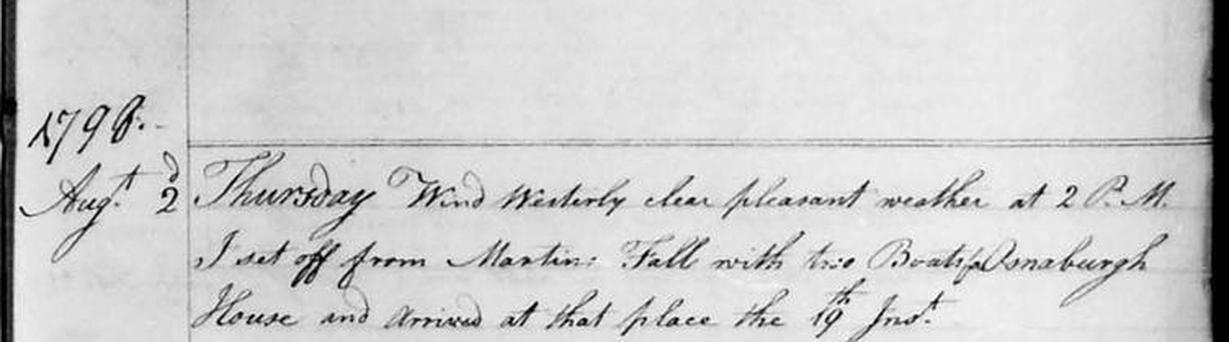 1798.
Augt 2d Thursday Wind Westerly clear pleasant weather at 2 P. M.
I set off from Martin: Fall with two Boats for Osnaburgh
House and arrived at that place the 19th Inst.